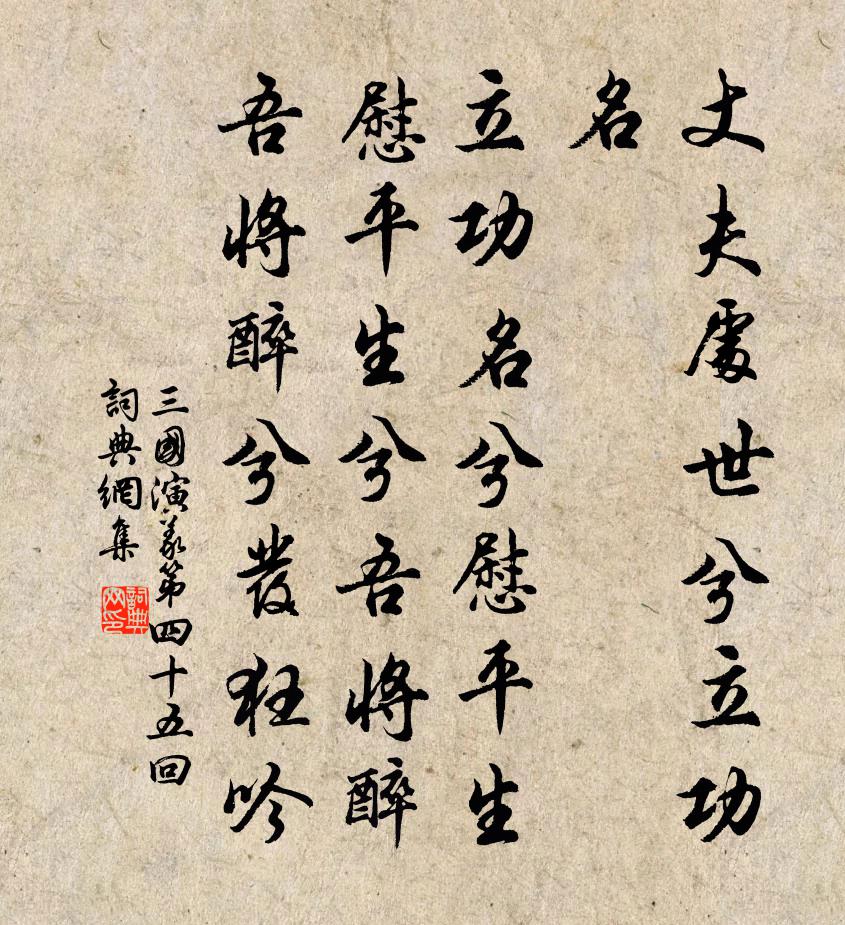 丈夫處世兮立功
名
立功名兮慰平生
慰平生兮吾將醉
吾將醉兮發狂吟
三國演義第四十五回
詞典網集
詞典
网印